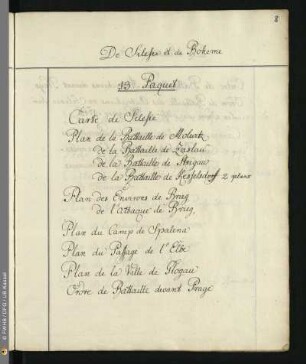 8
De Silesie et de Boheme
13 Paquet
Carte de Silesie
Plan de la Battaille de Molwitz
de la Battaille de Zaslau
de la Battaille de
de la Battaille de Kesselsdorf 2
Plan des Environs de Brieg
de l'attaque de Brieg
Plan du Camp de
Plan du Passage de l'Elbe
Plan de la Ville de Glogau
Ordre de Battaille devant Prage